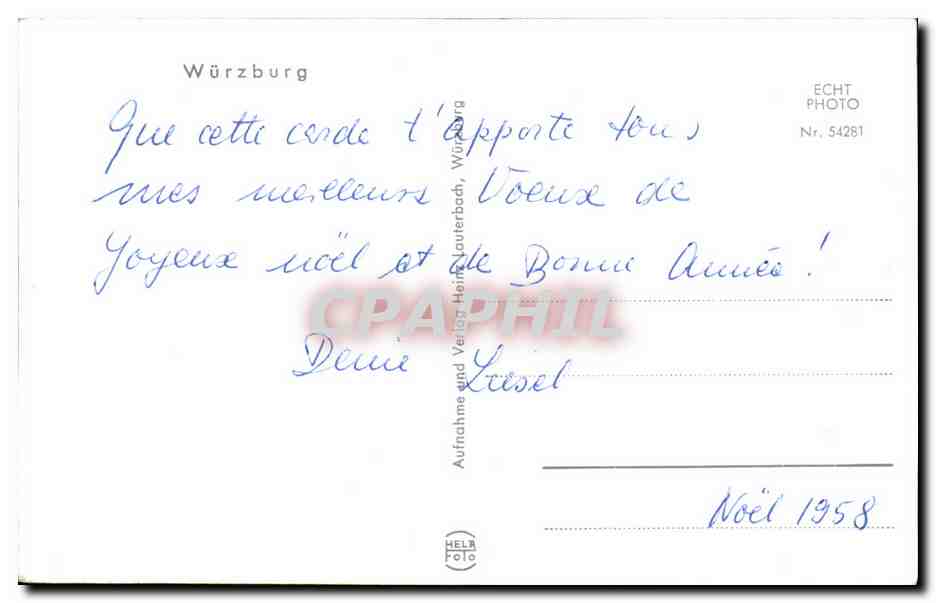 Würzburg
ECHT
PHOTO
Nr. 54281
Que cette carde t'apporte tous
mes meilleurs Voeux de
Joyeux nöel et de Bonne Année!
Deine Liesel
Noël 1958
Aufnahme und Verlag Heinz Lauterbach, Würzburg
HELA
FOTO
CPAPHIL